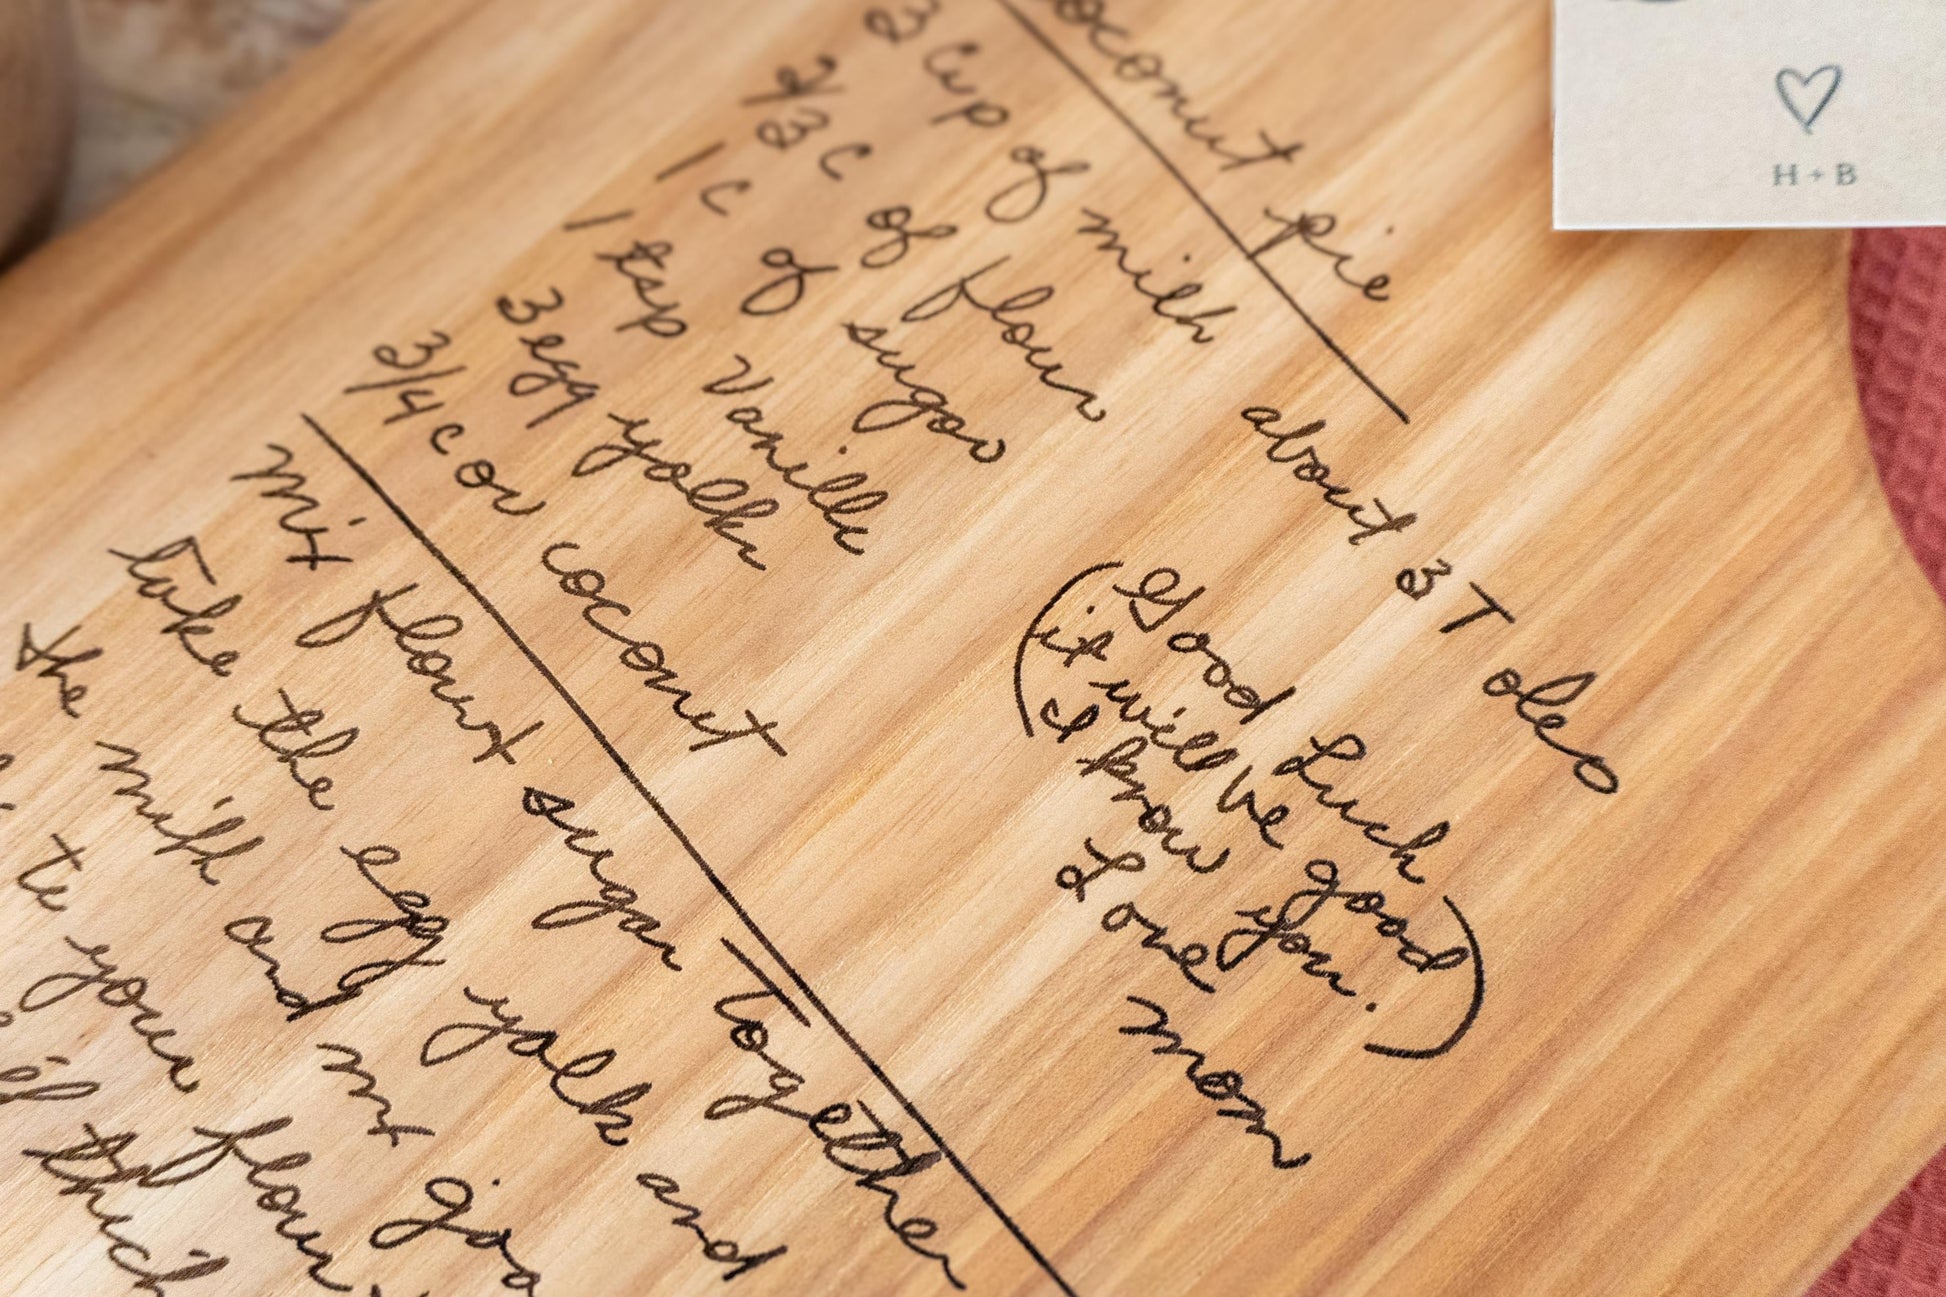 oconut pie
3 Cup of milk
2/3 C of flour
1 c of sugar
1 tsp Vanilla
3 egg yolks
3/4 c or coconut
about 3 T oleo
(Good Luck
it will be good
I know you.)
Love mom
mix flour + sugar together
take the egg yolk and
the milk and mix goo
to your flour
thick
H + B